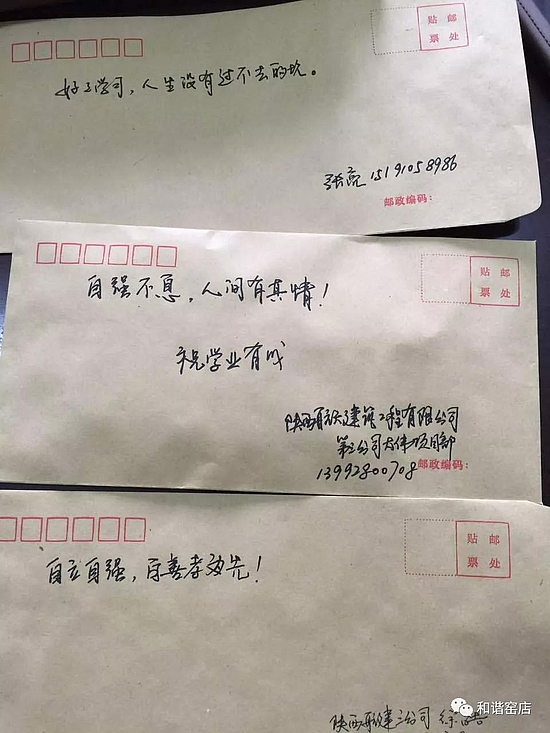 贴 邮
票 处
好好学习，人生没有过不去的坎。
张亮 15191058986
邮政编码：
贴 邮
票 处
自强不息，人间有真情！
祝学业有成
陕西航天建筑工程有限公司
第三公司 项目部
13992800708
邮政编码：
贴 邮
票 处
自立自强，百善孝为先！
陕西 建三公司 徐
和谐窑店